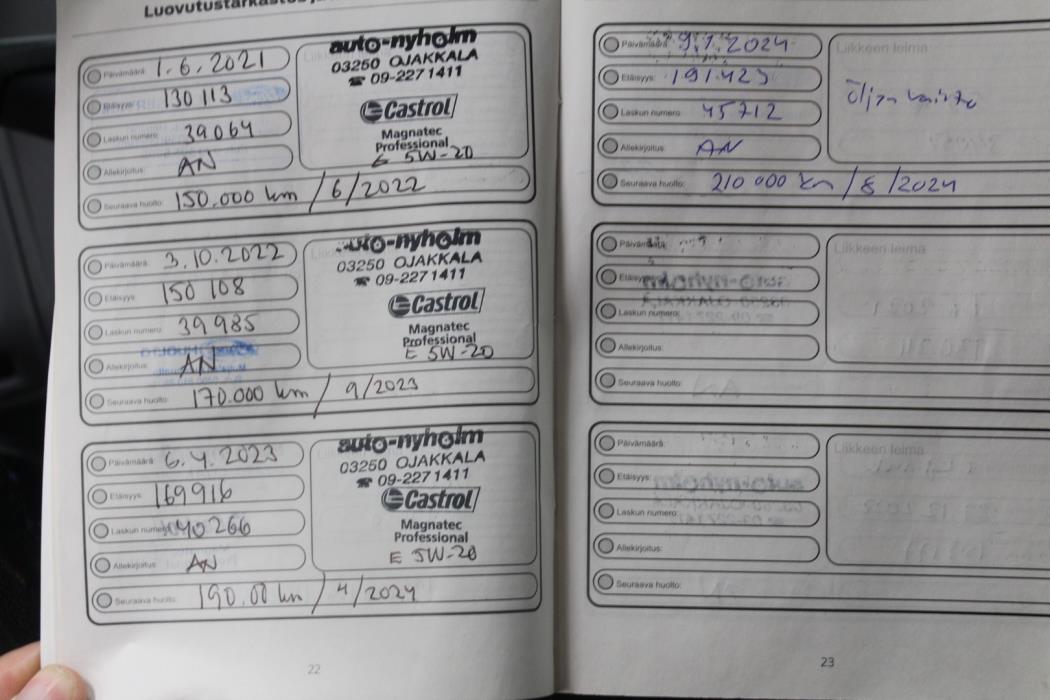 Luovutustarkastus
Päivämäärä: 1.6.2021
Etäisyys: 130 113
Laskun numero: 39064
Allekirjoitus: AN
Seuraava huolto: 150.000 km / 6/2022
auto-nyholm
03250 OJAKKALA
☎ 09-227 1411
Castrol
Magnatec
Professional
E 5W-20
Päivämäärä: 3.10.2022
Etäisyys: 150 108
Laskun numero: 39985
Allekirjoitus: AN
Seuraava huolto: 170.000 km / 9/2023
auto-nyholm
03250 OJAKKALA
☎ 09-227 1411
Castrol
Magnatec
Professional
E 5W-20
Päivämäärä: 6.4.2023
Etäisyys: 169916
Laskun numero: 40266
Allekirjoitus: AN
Seuraava huolto: 190.00 km / 4/2024
auto-nyholm
03250 OJAKKALA
☎ 09-227 1411
Castrol
Magnatec
Professional
E 5W-20
22
Päivämäärä: 9.1.2024
Etäisyys: 191423
Laskun numero: 45712
Allekirjoitus: AN
Seuraava huolto: 210 000 km / 8/2024
Liikkeen leima
Öljyn vaihto
Päivämäärä:
Etäisyys:
Laskun numero:
Allekirjoitus:
Seuraava huolto:
Liikkeen leima
Päivämäärä:
Etäisyys:
Laskun numero:
Allekirjoitus:
Seuraava huolto:
Liikkeen leima
23